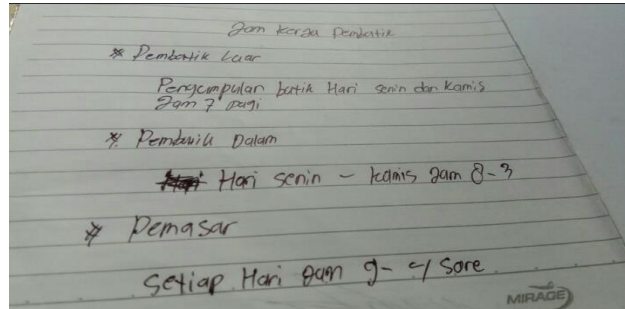 Jam kerja Pembatik
* Pembatik Luar
Pengumpulan batik Hari senin dan kamis
Jam 7 pagi
* Pembatik Dalam
Hari senin - kamis Jam 8-3
* Pemasar
Setiap Hari Jam 9-4 Sore
MIRAGE